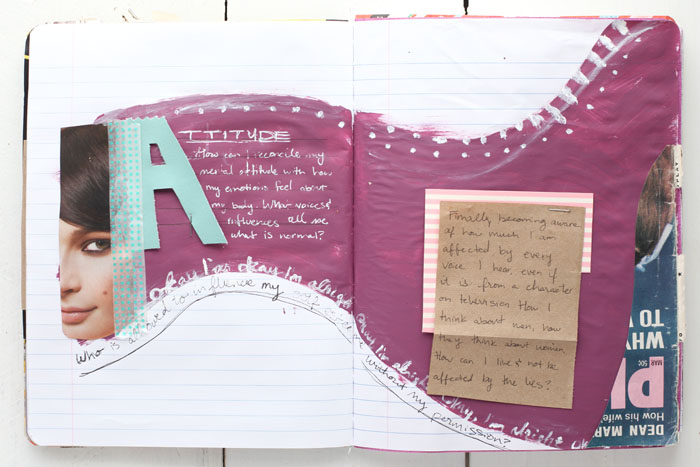 ATTITUDE
How can I reconcile my
mental attitude with how
my emotions feel about
my body. What voices &
influences tell me
what is normal?
okay I'm okay I'm alright okay I'm alright okay, I'm alright ok
Who is allowed to influence my without my permission?
Finally becoming aware
of how much I am
affected by every
voice I hear, even if
it is from a character
on television. How I
think about men, how
they think about women.
How can I live & not be
affected by the lies?
WHY
TO W
MAR
50c
DEAN MAR
How his wife